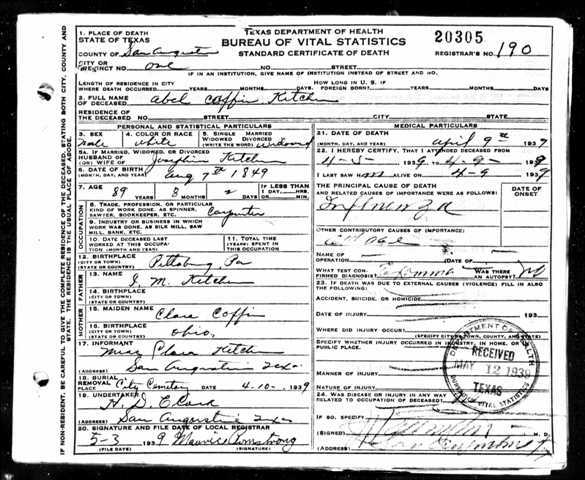 TEXAS DEPARTMENT OF HEALTH
BUREAU OF VITAL STATISTICS
STANDARD CERTIFICATE OF DEATH
20305
REGISTRAR'S NO. 190
1. PLACE OF DEATH
STATE OF TEXAS
COUNTY OF San Augustine
CITY OR PRECINCT NO one NO. STREET
IF IN AN INSTITUTION, GIVE NAME OF INSTITUTION INSTEAD OF STREET AND NO.
LENGTH OF RESIDENCE IN CITY WHERE DEATH OCCURRED YEARS MONTHS DAYS
HOW LONG IN U. S. IF FOREIGN BORN? YEARS MONTHS DAYS
2. FULL NAME OF DECEASED Abel Coffin Ketchum
RESIDENCE OF THE DECEASED STREET CITY COUNTY STATE
PERSONAL AND STATISTICAL PARTICULARS
3. SEX male
4. COLOR OR RACE white
5. SINGLE MARRIED WIDOWED DIVORCED (WRITE THE WORD) widowed
5A. IF MARRIED, WIDOWED, OR DIVORCED HUSBAND OF (OR) WIFE OF Josephine Ketchum
6. DATE OF BIRTH (MONTH, DAY, AND YEAR) Aug 7th 1849
7. AGE YEARS 89 MONTHS 8 DAYS 2 IF LESS THAN 1 DAY HOURS MIN.
OCCUPATION
8. TRADE, PROFESSION, OR PARTICULAR KIND OF WORK DONE, AS SPINNER, SAWYER, BOOKKEEPER, ETC. Carpenter
9. INDUSTRY OR BUSINESS IN WHICH WORK WAS DONE, AS SILK MILL, SAW MILL, BANK, ETC.
10. DATE DECEASED LAST WORKED AT THIS OCCUPATION (MONTH AND YEAR)
11. TOTAL TIME (YEARS) SPENT IN THIS OCCUPATION
12. BIRTHPLACE (CITY OR TOWN) (STATE OR COUNTRY) Pittsburg, Pa
FATHER
13. NAME J. M. Ketchum
14. BIRTHPLACE (CITY OR TOWN) (STATE OR COUNTRY)
MOTHER
15. MAIDEN NAME Clara Coffin
16. BIRTHPLACE (CITY OR TOWN) (STATE OR COUNTRY) Ohio,
17. INFORMANT Miss Clara Ketchum
(ADDRESS) San Augustine Tex-
18. BURIAL REMOVAL City Cemetery DATE 4-10- 1939
19. UNDERTAKER
(ADDRESS) San Augustine Tex-
20. SIGNATURE AND FILE DATE OF LOCAL REGISTRAR
5-3 1939 Maurice Armstrong
(FILE DATE) (SIGNATURE)
MEDICAL PARTICULARS
21. DATE OF DEATH (MONTH, DAY, AND YEAR) April 9th 1939
22. I HEREBY CERTIFY, THAT I ATTENDED DECEASED FROM
4-5- 1939 TO 4-9- 1939
I LAST SAW HIM ALIVE ON 4-9 1939
THE PRINCIPAL CAUSE OF DEATH AND RELATED CAUSES OF IMPORTANCE WERE AS FOLLOWS:
DATE OF ONSET
Influenza
OTHER CONTRIBUTORY CAUSES OF IMPORTANCE:
old age
NAME OF OPERATION DATE OF
WHAT TEST CONFIRMED DIAGNOSIS? WAS THERE AN AUTOPSY? no
23. IF DEATH WAS DUE TO EXTERNAL CAUSES (VIOLENCE) FILL IN ALSO THE FOLLOWING:
ACCIDENT, SUICIDE, OR HOMICIDE
DATE OF INJURY
WHERE DID INJURY OCCUR? (SPECIFY CITY OR TOWN, COUNTY, AND STATE)
SPECIFY WHETHER INJURY OCCURRED IN INDUSTRY, IN HOME, OR IN PUBLIC PLACE.
MANNER OF INJURY
NATURE OF INJURY
24. WAS DISEASE OR INJURY IN ANY WAY RELATED TO OCCUPATION OF DECEASED?
IF SO, SPECIFY
(SIGNED) M. D.
(ADDRESS)
DEPARTMENT OF HEALTH
RECEIVED
MAY 12 1939
TEXAS
BUREAU OF VITAL STATISTICS